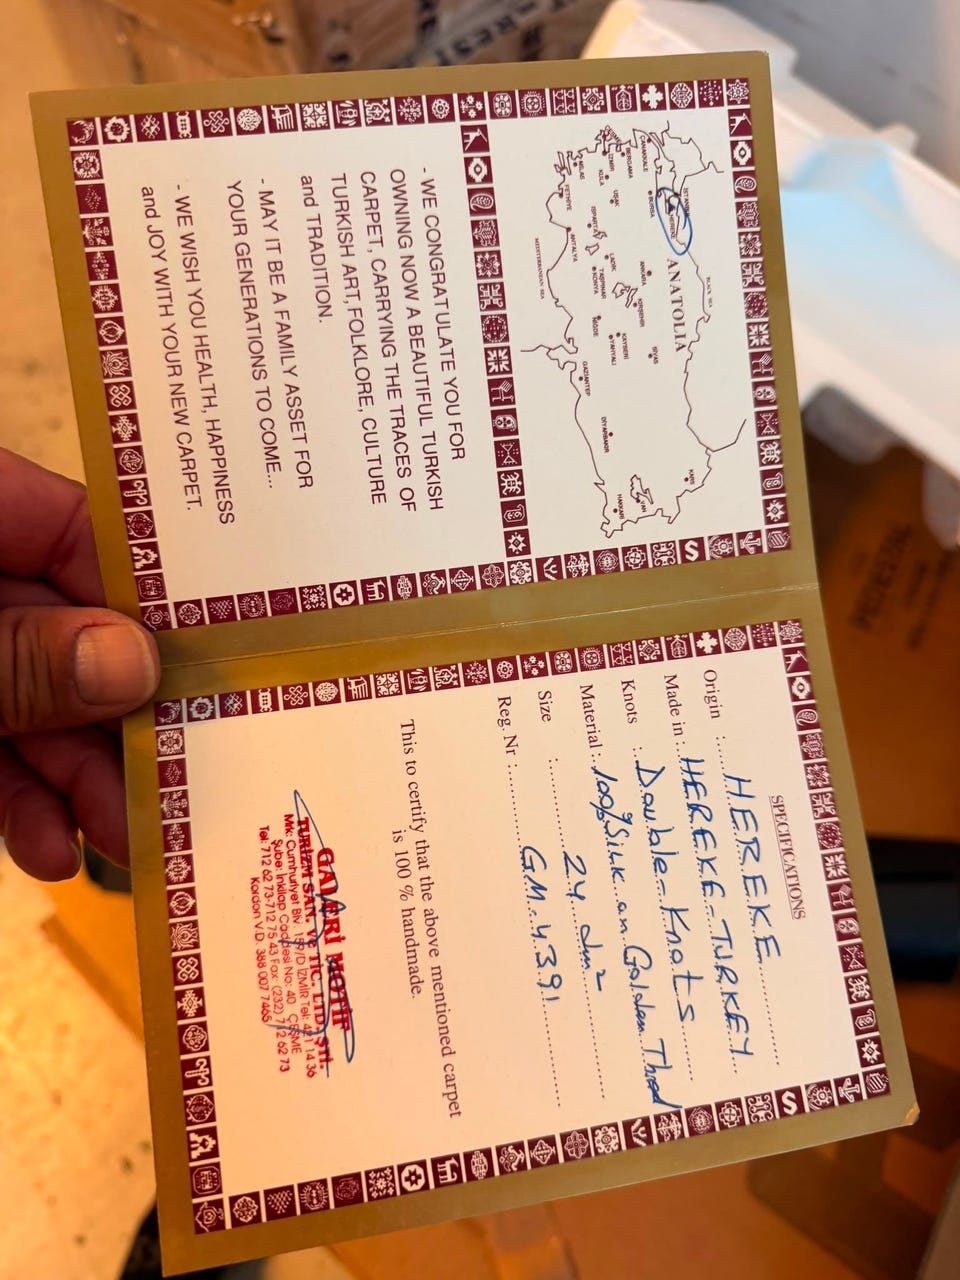 ANATOLIA
BLACK SEA
MEDITERRANEAN SEA
ÇANAKKALE
BERGAMA
İZMİR
KULA
MİLAS
UŞAK
BURSA
İSTANBUL
HEREKE
FETHİYE
ISPARTA
ANTALYA
LADİK
ANKARA
KONYA
TAŞPINAR
KIRŞEHİR
NİĞDE
KAYSERİ
YAHYALI
SİVAS
GAZİANTEP
DİYARBAKIR
KARS
VAN
HAKKARİ
- WE CONGRATULATE YOU FOR
OWNING NOW A BEAUTIFUL TURKISH
CARPET, CARRYING THE TRACES OF
TURKISH ART,FOLKLORE, CULTURE
and TRADITION.
- MAY IT BE A FAMILY ASSET FOR
YOUR GENERATIONS TO COME...
- WE WISH YOU HEALTH, HAPPINESS
and JOY WITH YOUR NEW CARPET.
SPECIFICATIONS
Origin : HEREKE
Made in : HEREKE-TURKEY
Knots : Double-Knots
Material : 100% Silk on Golden Thread
Size : 24 dm²
Reg. Nr : GM.4391
This to certify that the above mentioned carpet
is 100 % handmade.
GALERİ MOTİF
TURİZM SAN. ve TİC. LTD. ŞTİ.
Mrk: Cumhuriyet Blv. 159/D İZMİR Tel: 421 14 36
Şube: İnkilap Caddesi No: 40 ÇEŞME
Tel: 712 62 73-712 75 43 Fax: (232) 712 62 73
Kordon V.D. 388 007 7465